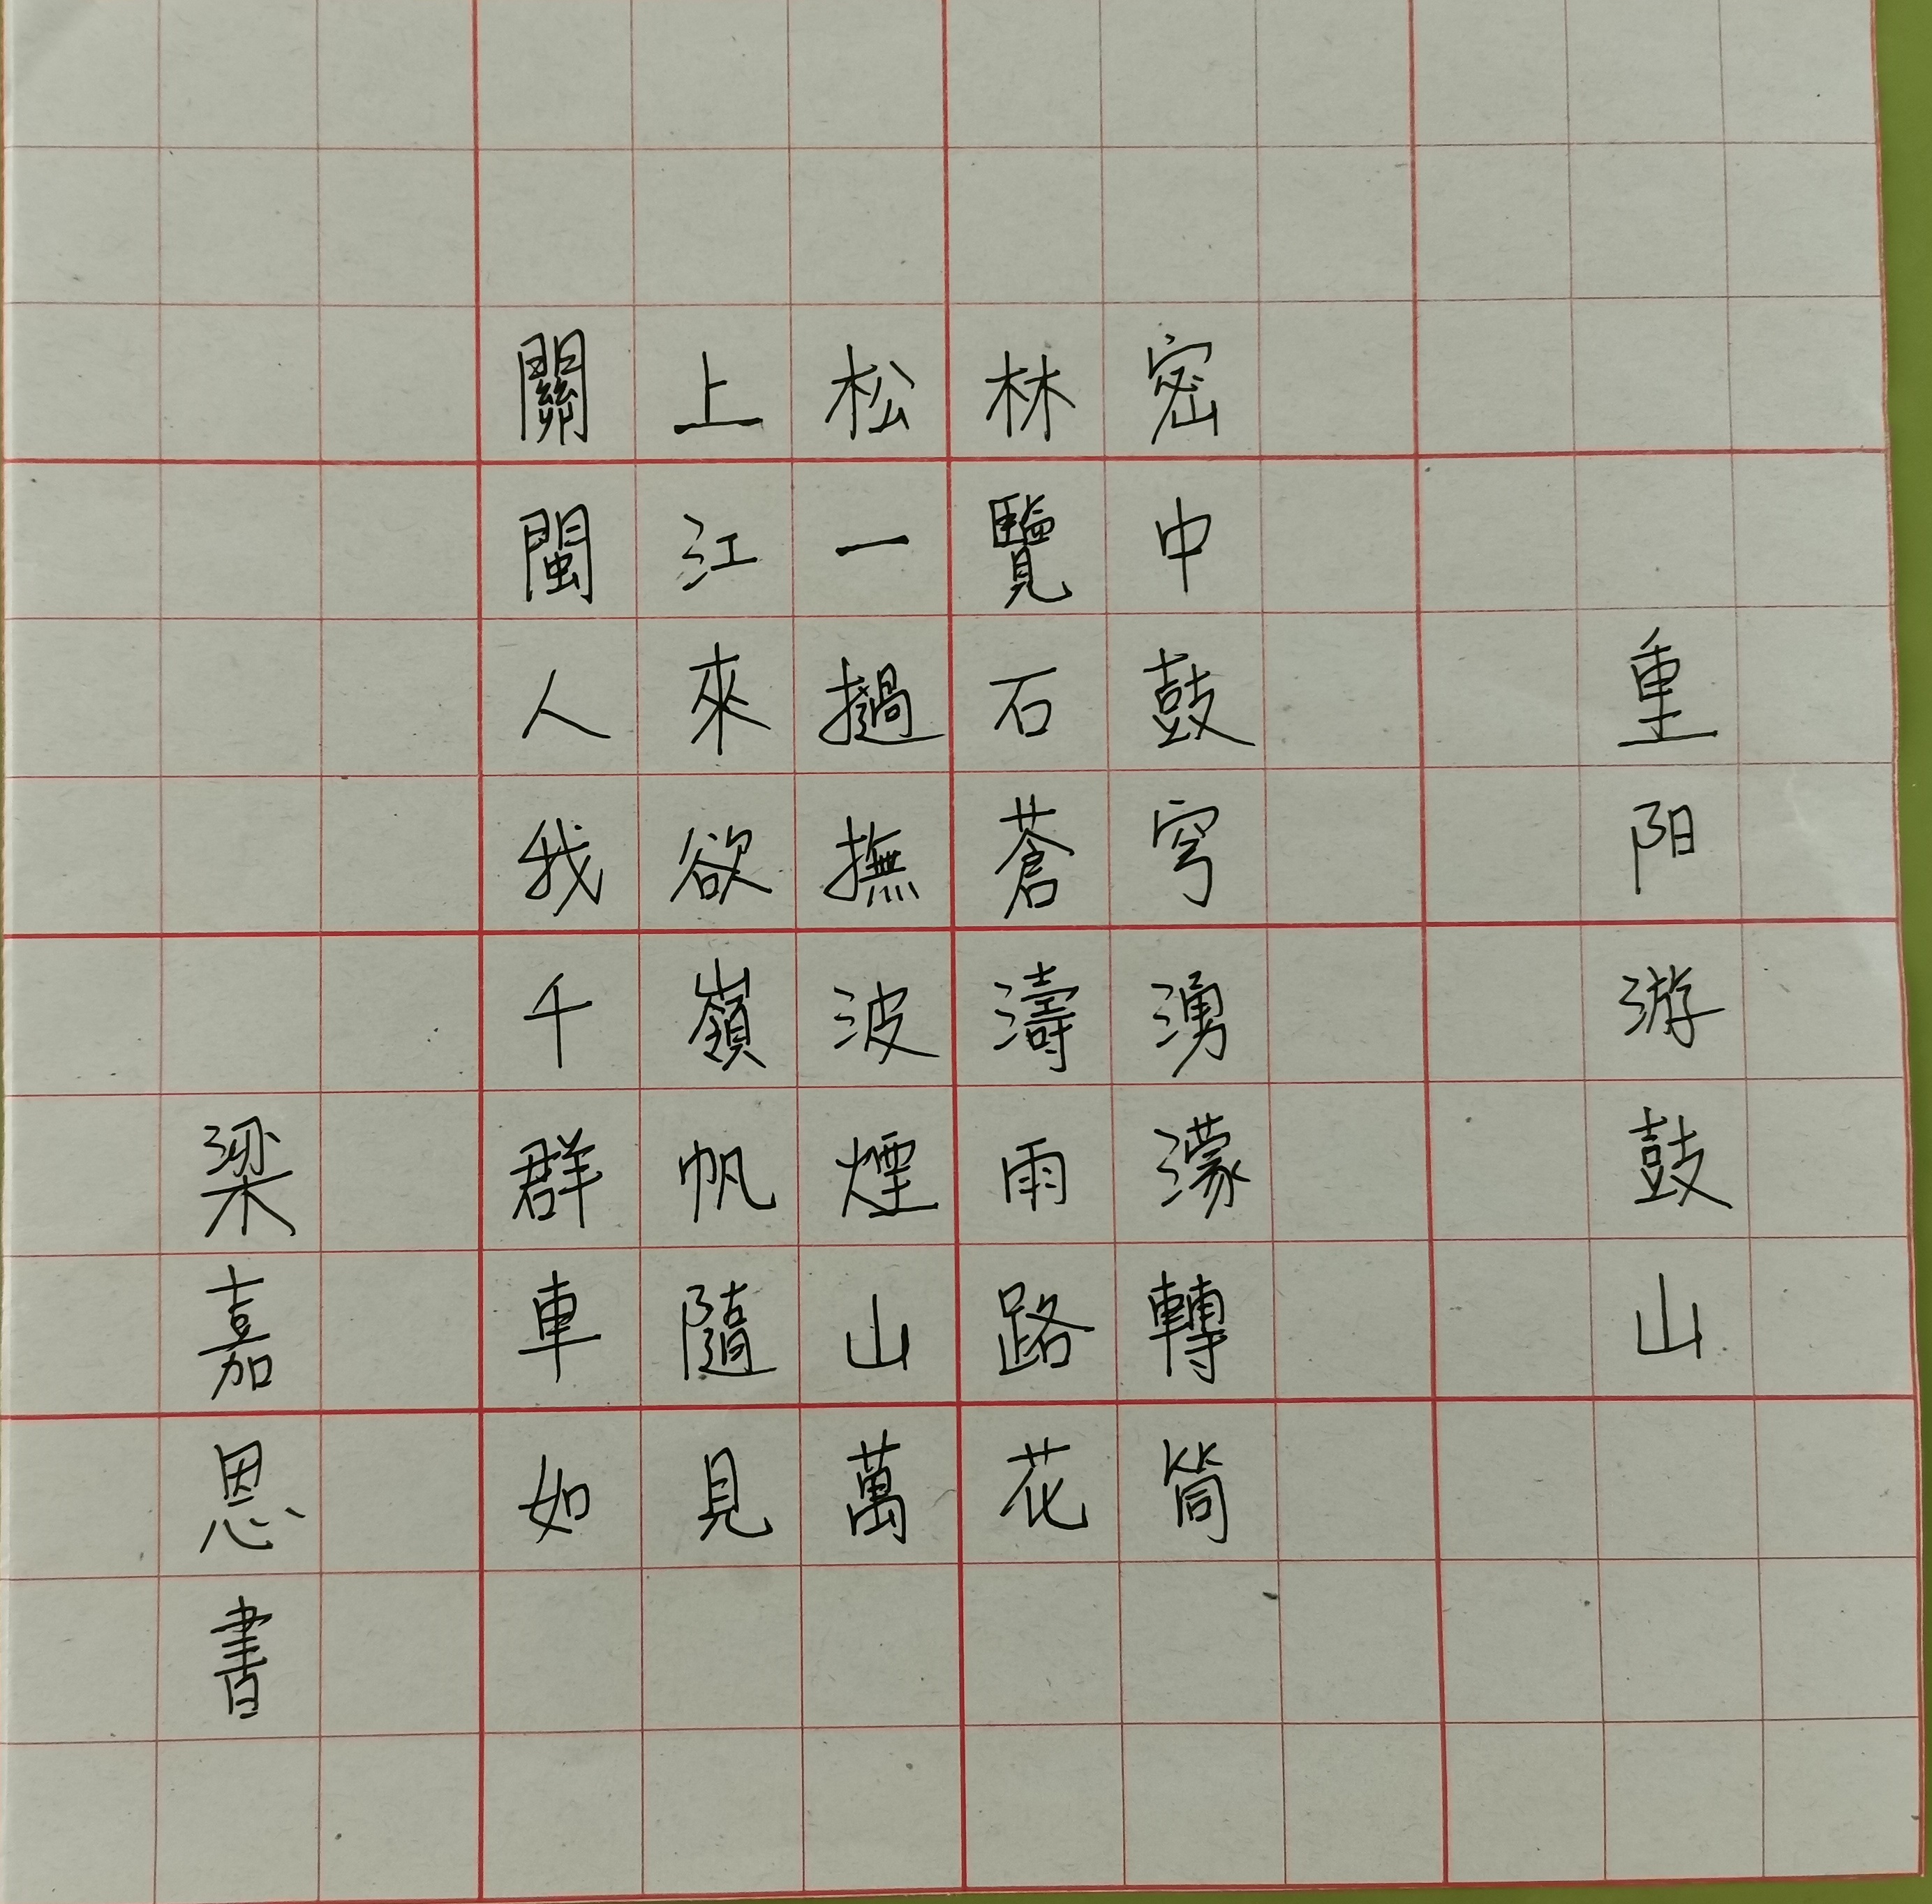 重阳游鼓山
關上松林密
閩江一覽中
人來撾石鼓
我欲撫蒼穹
千嶺波濤湧
群帆煙雨濛
車隨山路轉
如見萬花筒
梁嘉恩書